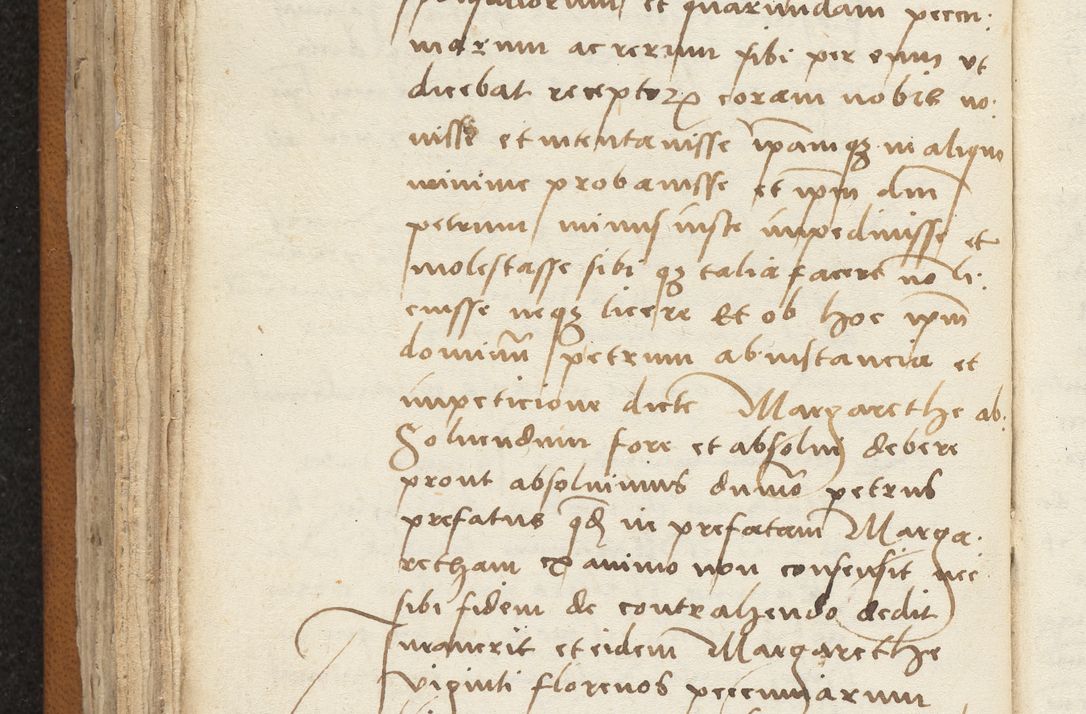 et quarumdam peccu-
niarum ac rerum sibi per eum ut
dicebat receptorꝝ coram nobis no-
uisse et intentauisse ip̄amqꝫ in aliquo
minime probauisse et ip̄m dn̄m
petrum minus iuste impediuisse et
molestasse sibi qꝫ talia facere no̅ li-
cuisse neqꝫ licere Et ob hoc ip̄m
dominū petrum ab instancia et
impeticione dicte Margarethe ab-
Soluendum fore et absolui debere
prout absoluimus dummō petrus
prefatus qd̄ in prefatam Marga-
retham ex animo non consensit nec
sibi fidem de contrahendo dedit
Iurauerit et eidem Margarethe
viginti florenos peccuniarum